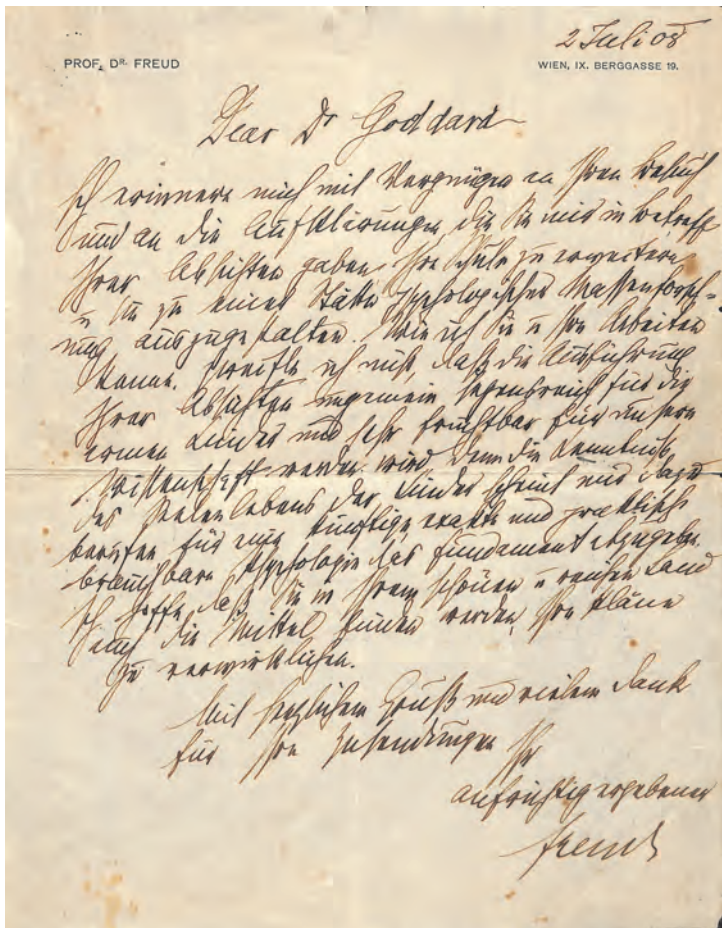 2 Juli 08
PROF. DR. FREUD
WIEN, IX. BERGGASSE 19.
Dear Dr Goddard
Ich erinnere mich mit Vergnügen an Ihren Besuch
und an die Aufklärungen, die Sie mir in Betreff
Ihrer Absichten gaben, Ihre Schule zu erweitern
u sie zu einer Stätte psychologischer Massenforsch-
ung auszugestalten. Wie ich Sie u Ihre Arbeiten
kenne, zweifle ich nicht, daß die Ausführung
Ihrer Absichten ungemein segensreich für die
armen Kinder und sehr fruchtbar für unsere
Wissenschaft werden wird, denn die Kenntnis
des Seelenlebens der Kinder scheint mir dazu
berufen für eine künftige exakte und praktisch
brauchbare Psychologie das Fundament abzugeben.
Ich hoffe, daß Sie in Ihrem schönen u reichen Land
auch die Mittel finden werden, Ihre Pläne
zu verwirklichen.
Mit herzlichem Gruß und vielem Dank
für Ihre Zusendungen Ihr
aufrichtig ergebener
Freud